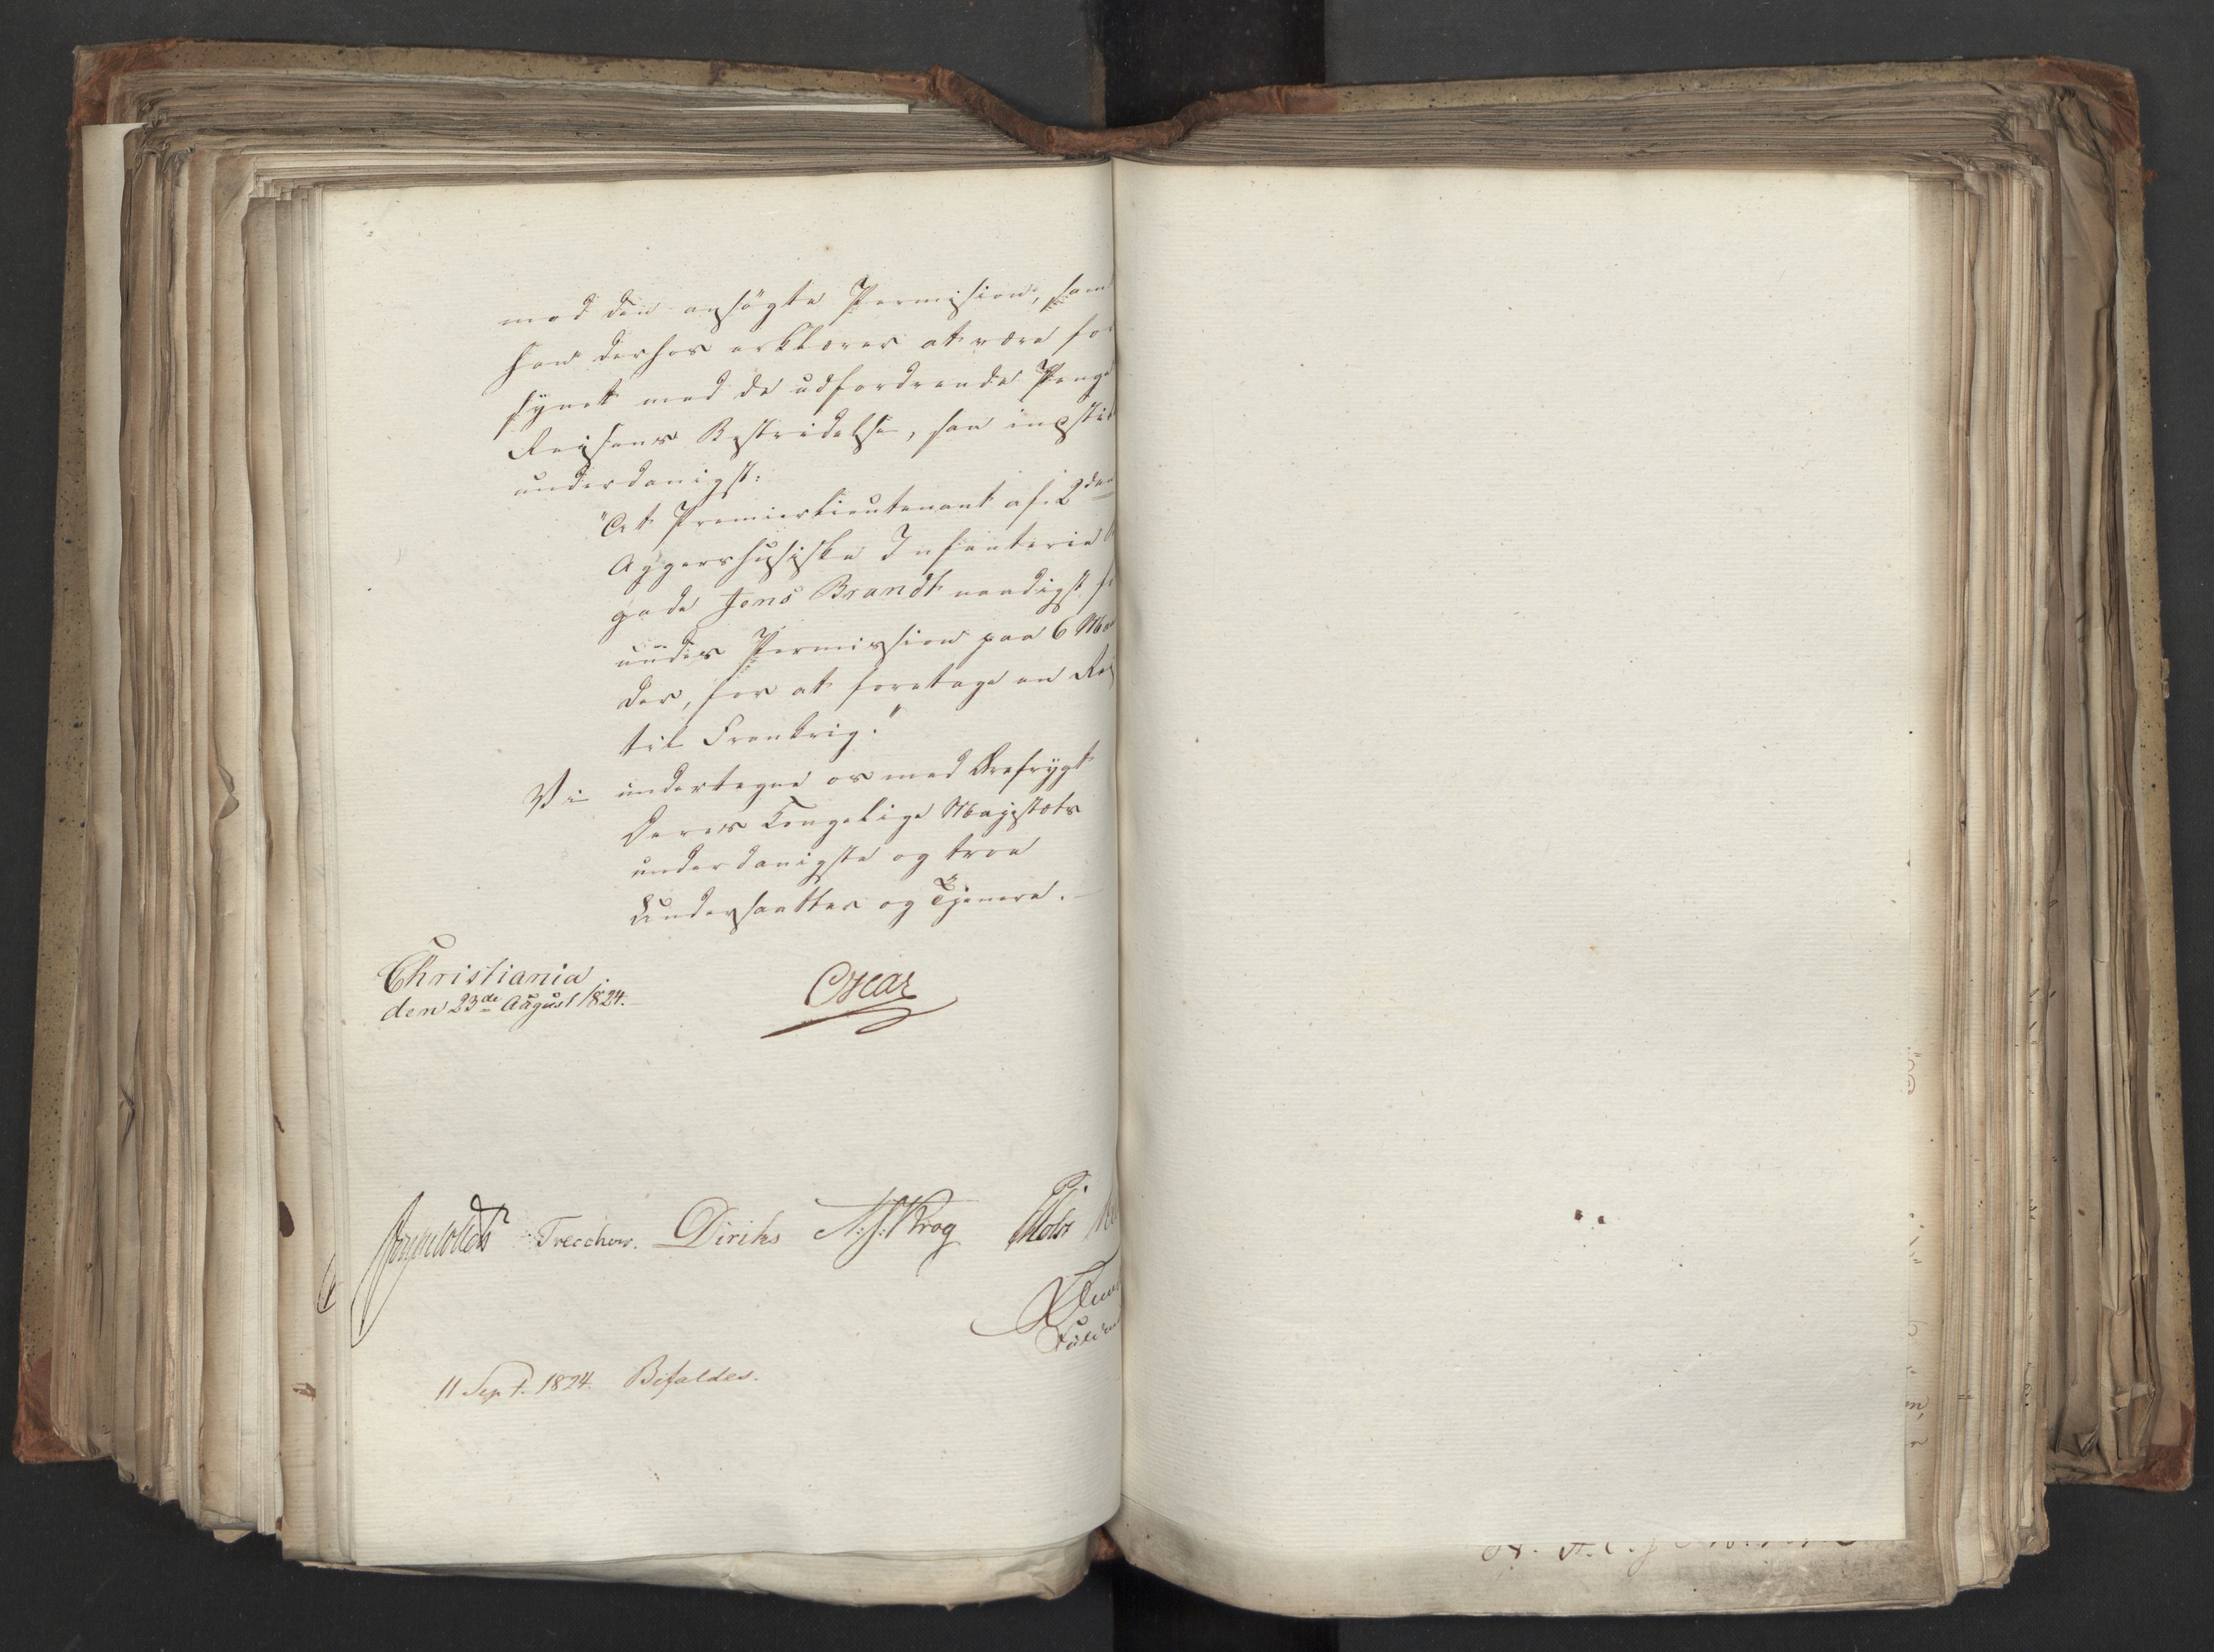 med den ansøgte Permission, sam
han derhos erklærer at være for
synet med de udfordrende Penge
Reisens Bestridelse, saa indstil
underdanigst:
"At Premierlieutenant af 2den
Aggershusiske Infanterie B
gade Jens Brandt naadigst
undes Permission paa 6 Maa
der, for at foretage en Rei
til Frankrig."
Vi undertegne os med Ærefrygt
Deres Kongelige Majestæts
underdanigste og troe
Undersaatter og Tjenere.
Christiania
den 23de August 1824.
Oscar
Treschow. Diriks A: J: Krog
11 Sept. 1824. Bifaldes.